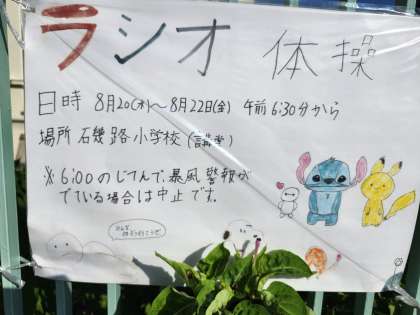 ラジオ 体操
日時 8月20(水)〜8月22日(金) 午前6:30分から
場所 石磯路小学校(講堂)
※ 6:00のじてんで、暴風警報が
でている場合は中止です。